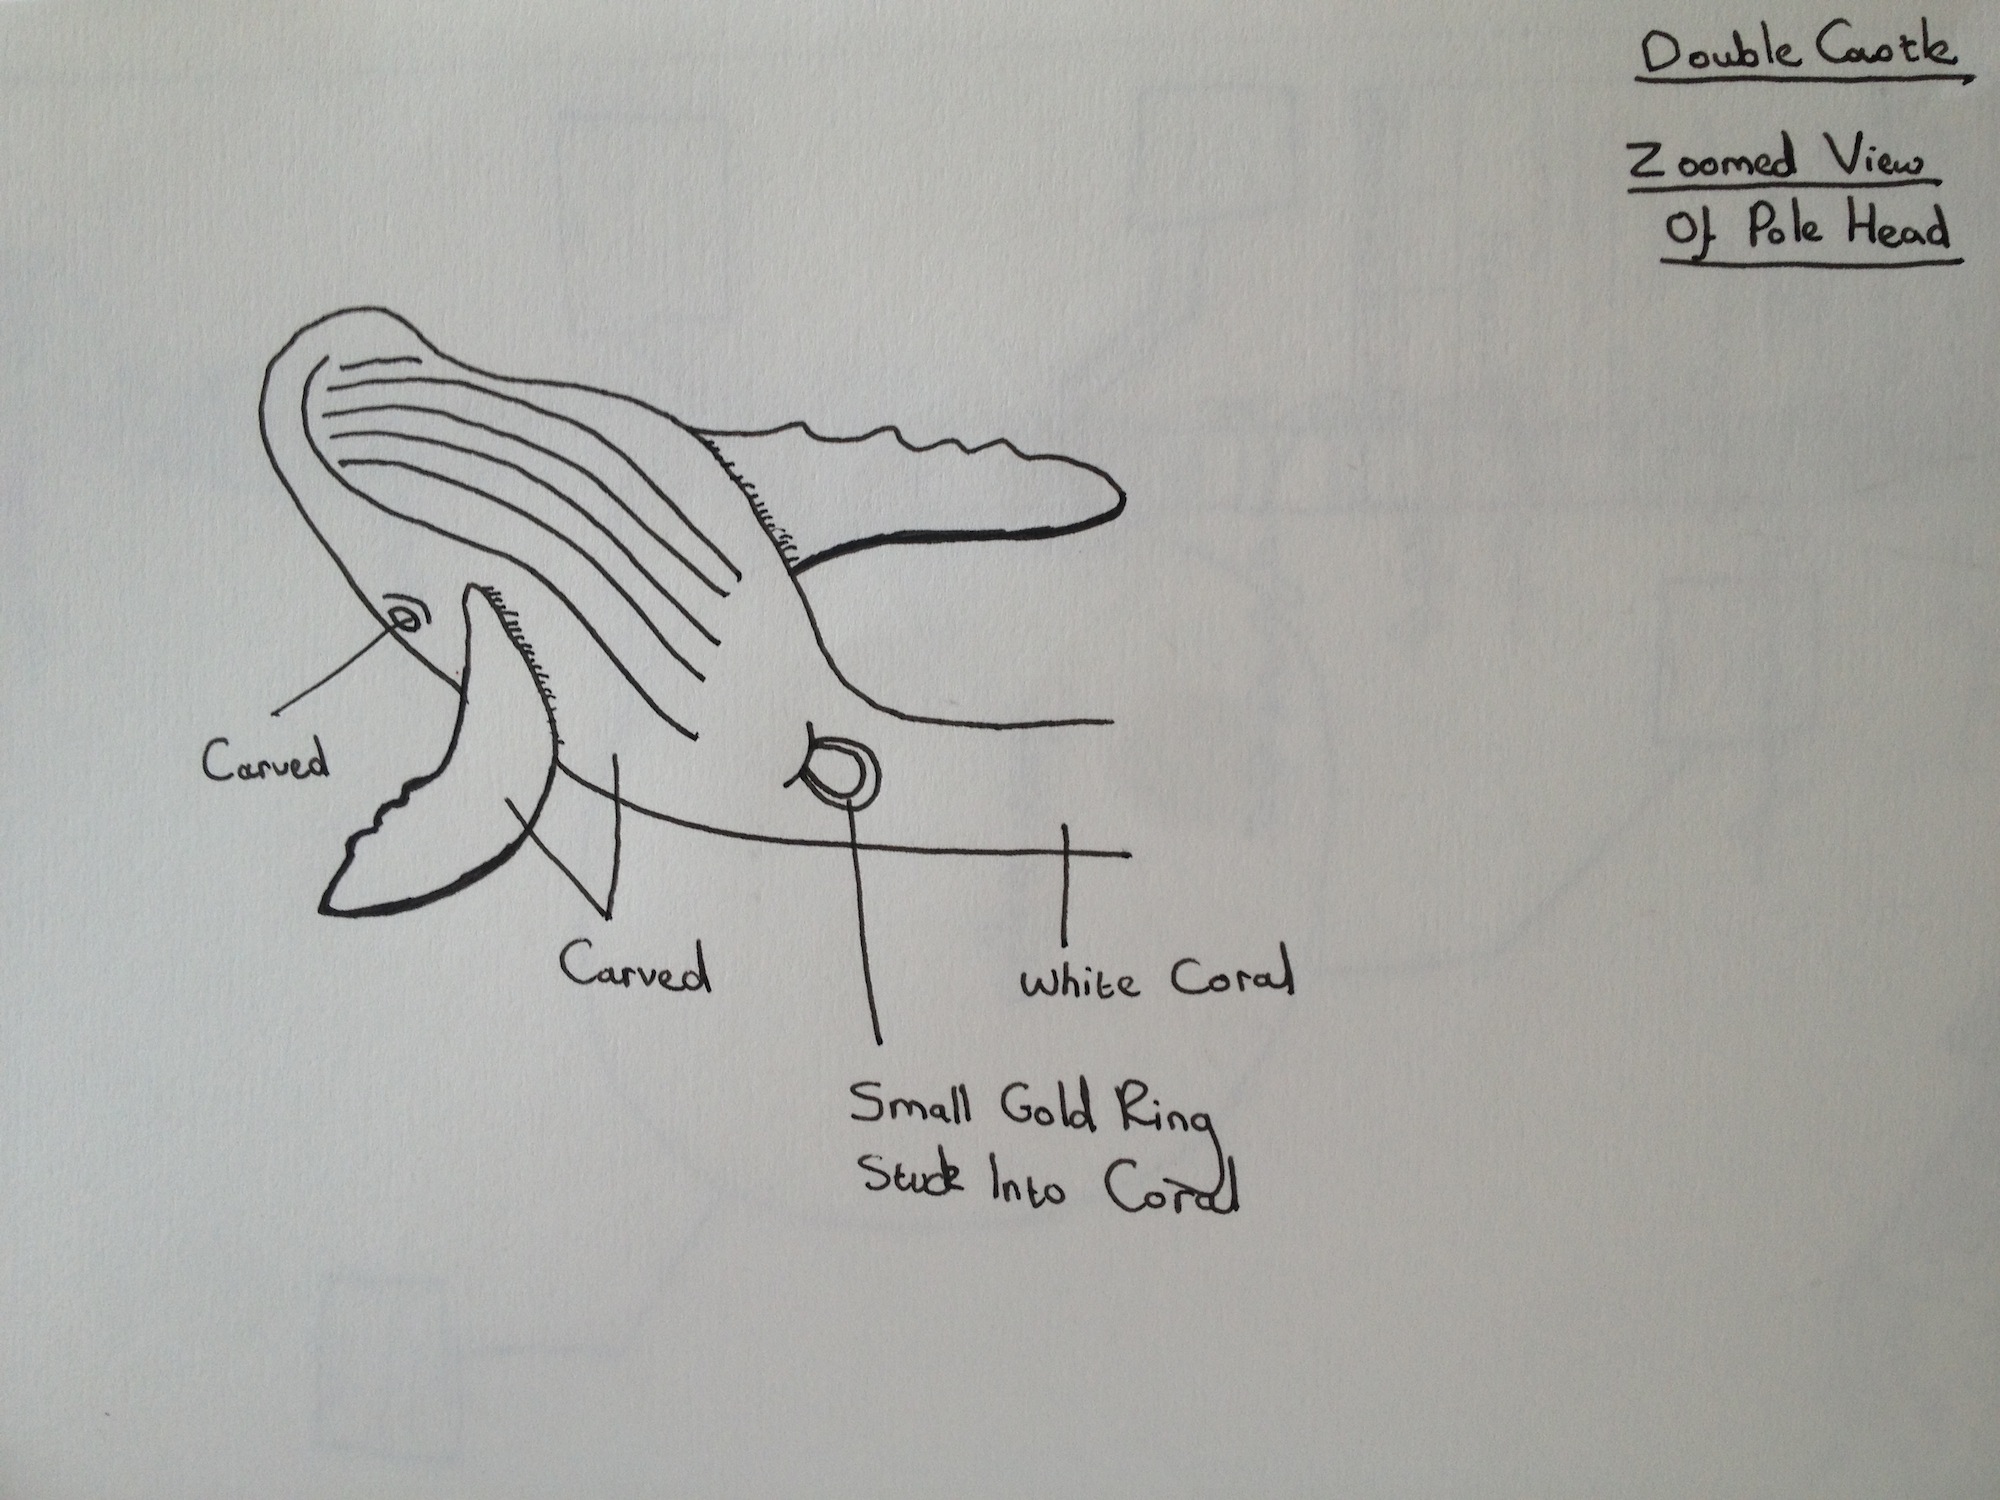 Double Castle
Zoomed View
Of Pole Head
Carved
Carved
White Coral
Small Gold Ring
Stuck Into Coral